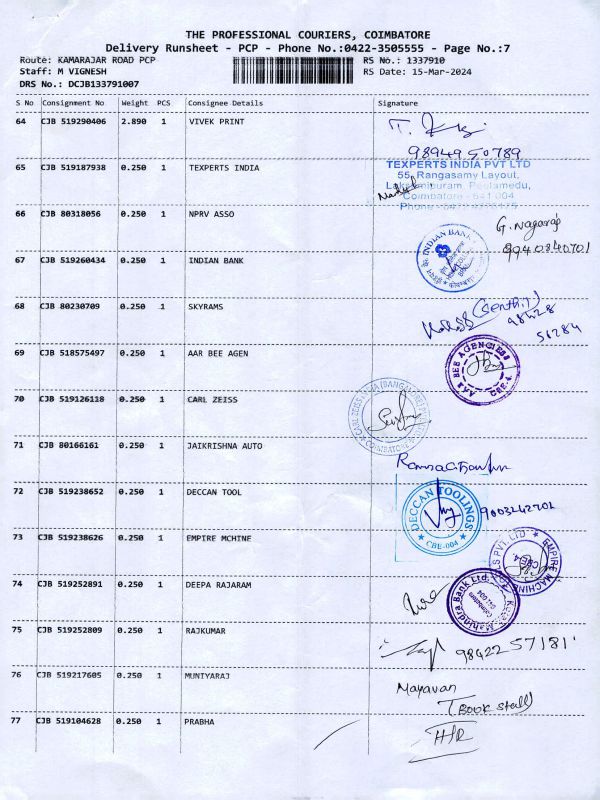 THE PROFESSIONAL COURIERS, COIMBATORE
Delivery Runsheet - PCP - Phone No.:0422-3505555 - Page No.:7
Route: KAMARAJAR ROAD PCP
RS No.: 1337910
Staff: M VIGNESH
RS Date: 15-Mar-2024
DRS No.: DCJB133791007
S No Consignment No Weight PCS Consignee Details Signature
64 CJB 519290406 2.890 1 VIVEK PRINT
9894950789
65 CJB 519187938 0.250 1 TEXPERTS INDIA
TEXPERTS INDIA PVT LTD
55, Rangasamy Layout,
Lakshmipuram, Peelamedu,
Coimbatore - 641 004
Phone
66 CJB 80318056 0.250 1 NPRV ASSO
G. Nagaraj
9940840701
67 CJB 519260434 0.250 1 INDIAN BANK
INDIAN BANK
68 CJB 80230709 0.250 1 SKYRAMS
(Senthil)
98428
56284
69 CJB 518575497 0.250 1 AAR BEE AGEN
BEE AGENCIES
CBE-4
70 CJB 519126118 0.250 1 CARL ZEISS
CARL ZEISS INDIA (BANGALORE) PVT
COIMBATORE
71 CJB 80166161 0.250 1 JAIKRISHNA AUTO
72 CJB 519238652 0.250 1 DECCAN TOOL
DECCAN TOOLINGS
CBE-004
9003242702
73 CJB 519238626 0.250 1 EMPIRE MCHINE
EMPIRE MACHINE
S PVT. LTD
CBE-4
74 CJB 519252891 0.250 1 DEEPA RAJARAM
Kotak Mahindra Bank Ltd.
Coimbatore
641 004
75 CJB 519252809 0.250 1 RAJKUMAR
98422 57181
76 CJB 519217605 0.250 1 MUNIYARAJ
Mayavan
(Book stall)
77 CJB 519104628 0.250 1 PRABHA